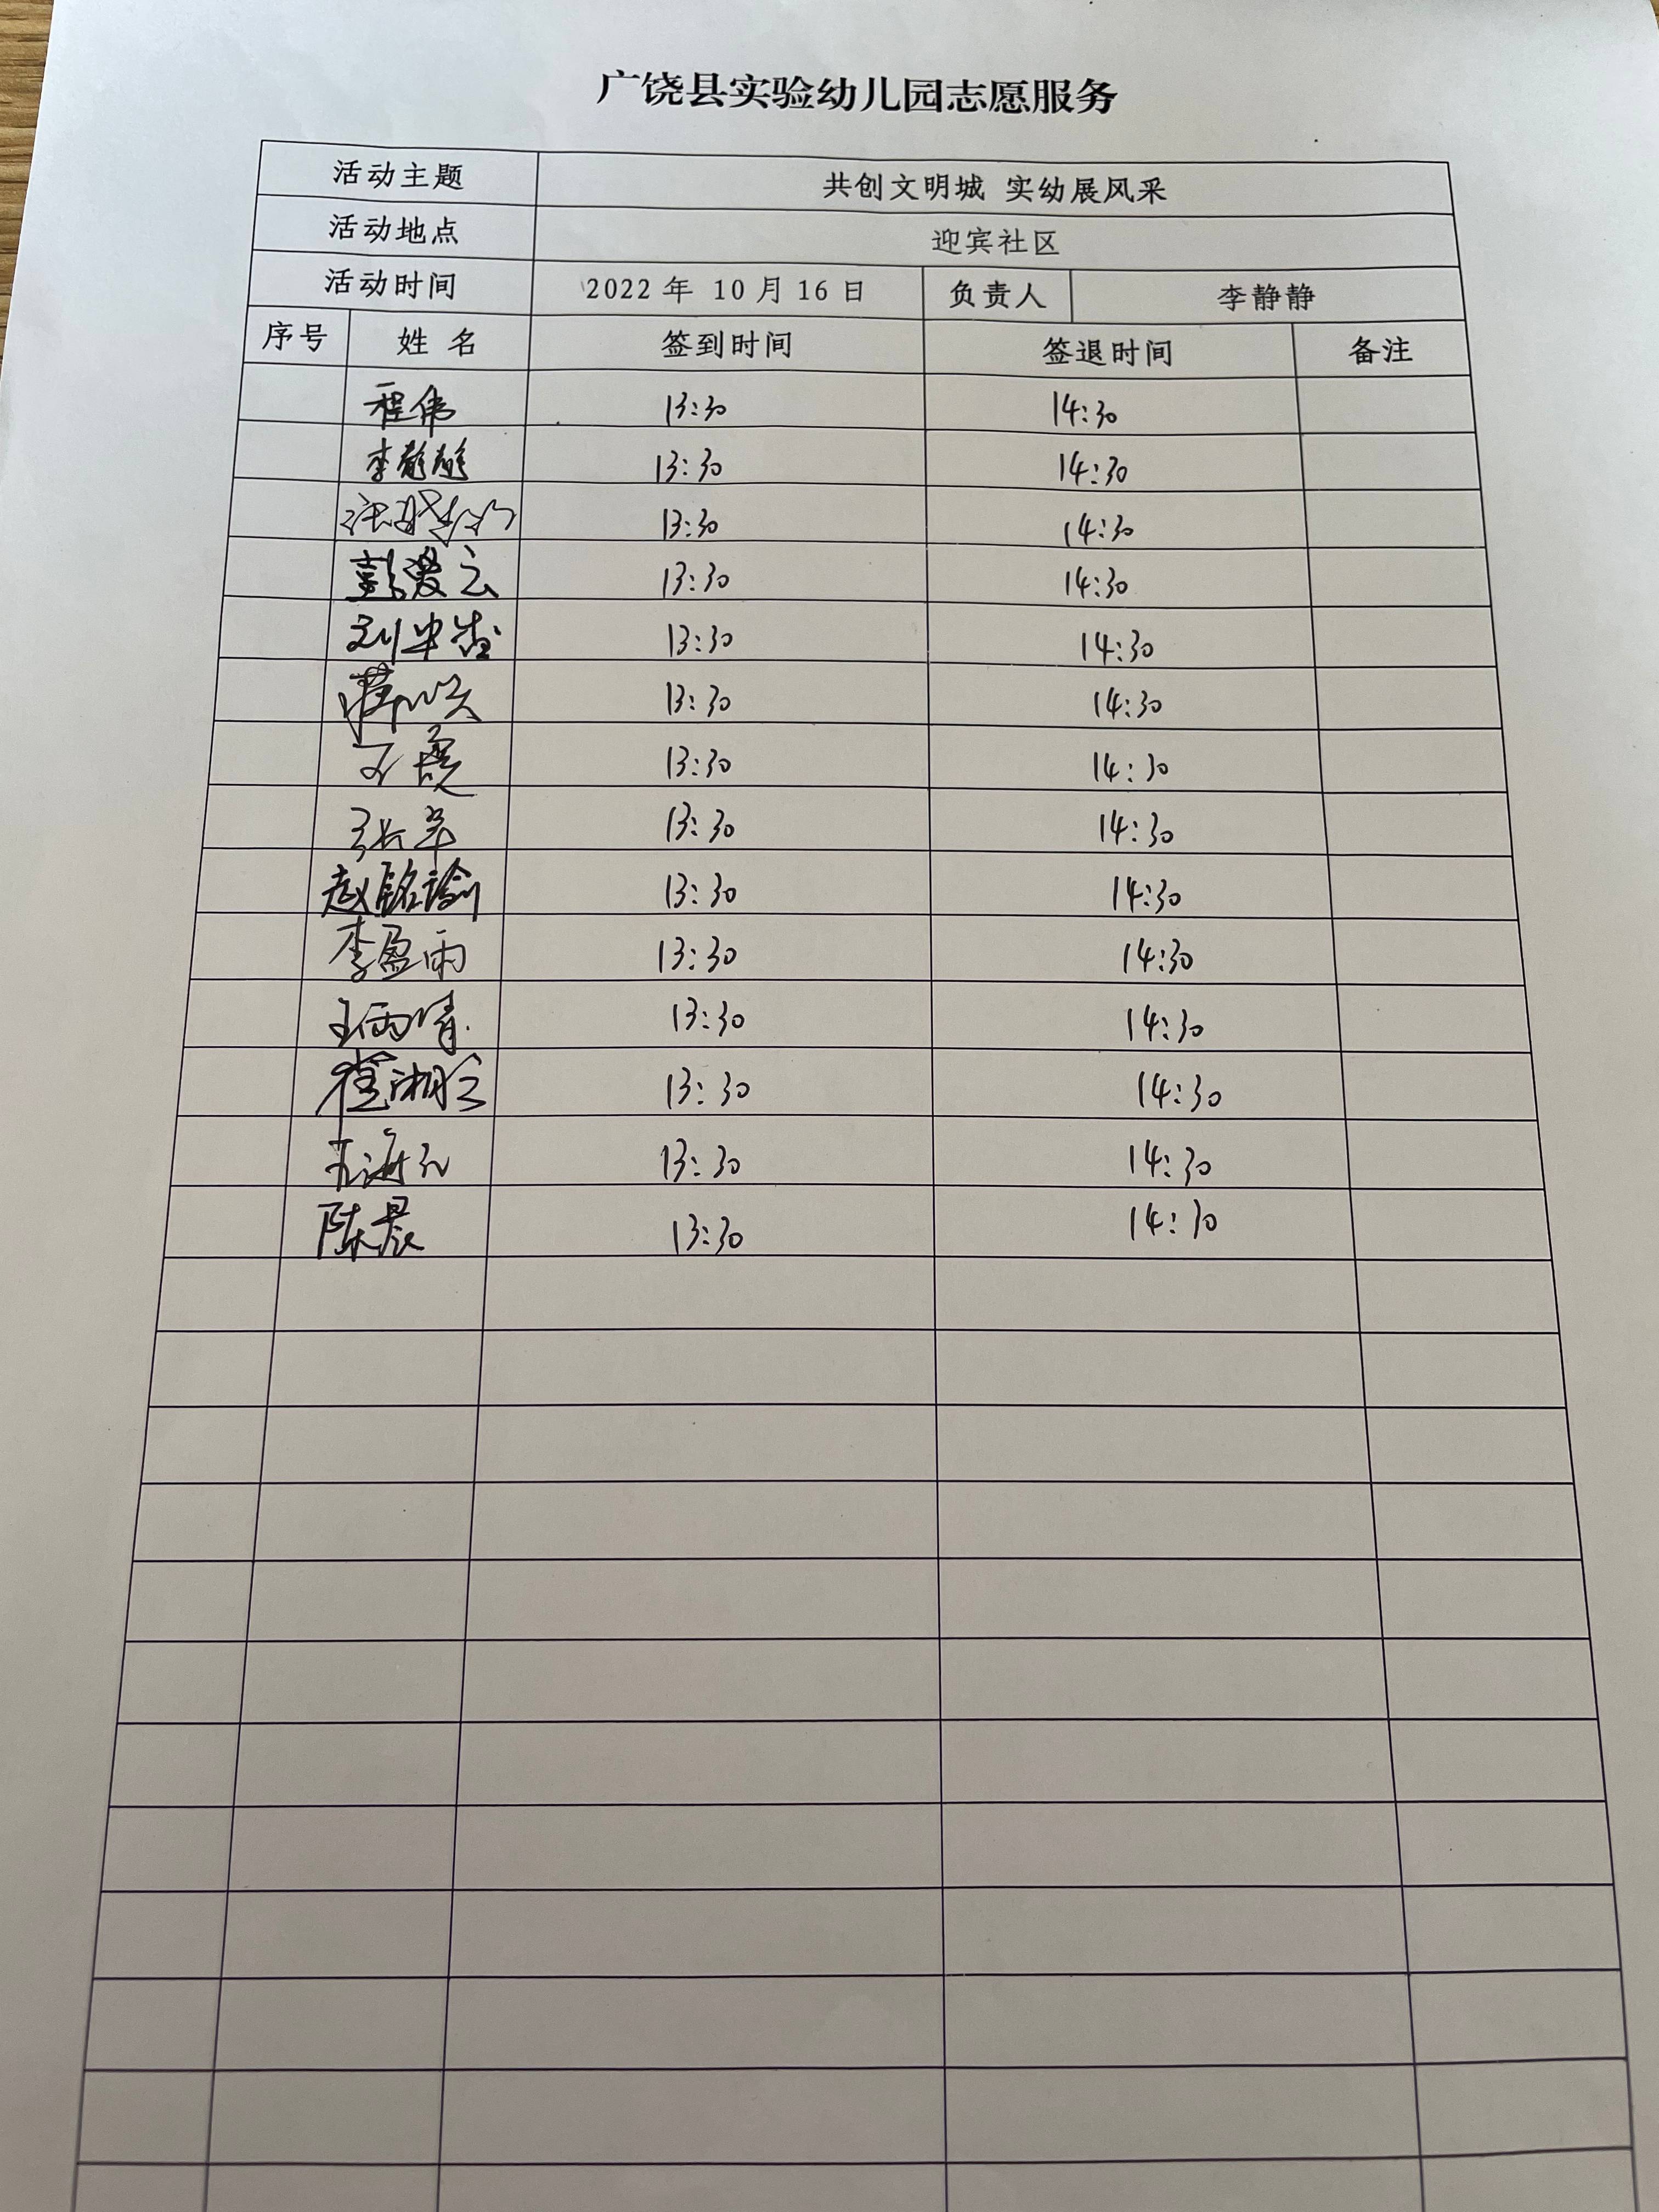 广饶县实验幼儿园志愿服务
活动主题 共创文明城 实幼展风采
活动地点 迎宾社区
活动时间 2022年 10月16日 负责人 李静静
序号 姓名 签到时间 签退时间 备注
程伟 13:30 14:30
李静静 13:30 14:30
13:30 14:30
彭爱云 13:30 14:30
刘 13:30 14:30
13:30 14:30
13:30 14:30
张 13:30 14:30
赵铭渝 13:30 14:30
李盈雨 13:30 14:30
王雨晴 13:30 14:30
崔湘云 13:30 14:30
王海 13:30 14:30
陈晨 13:30 14:30